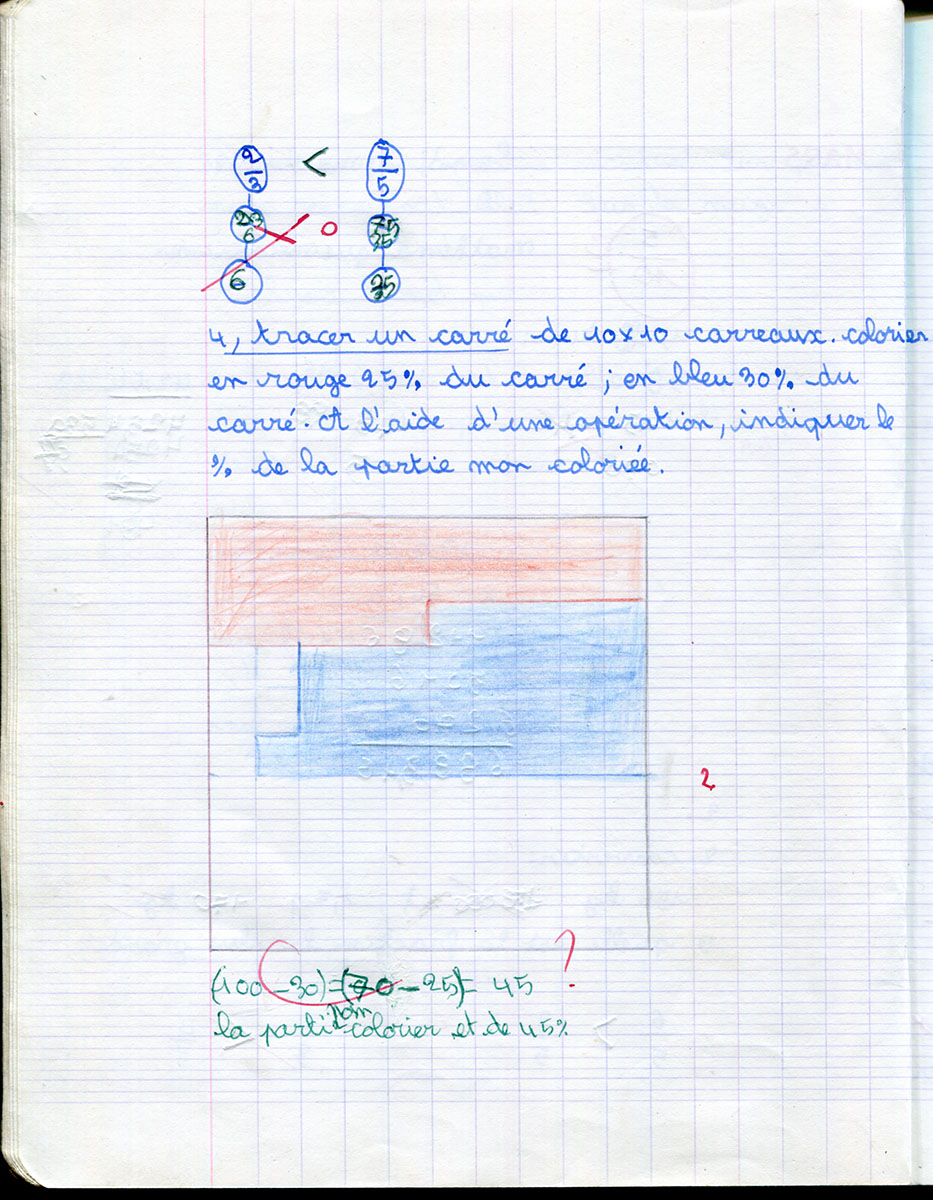 2/3 < 7/5
23 0 75
6 35
6 35
4, tracer un carré de 10x10 carreaux. colorier
en rouge 25% du carré ; en bleu 30% du
carré. A l'aide d'une opération, indiquer le
% de la partie non coloriée.
2
?
(100 - 30) = (70 - 25) = 45
la parti non colorier et de 45%